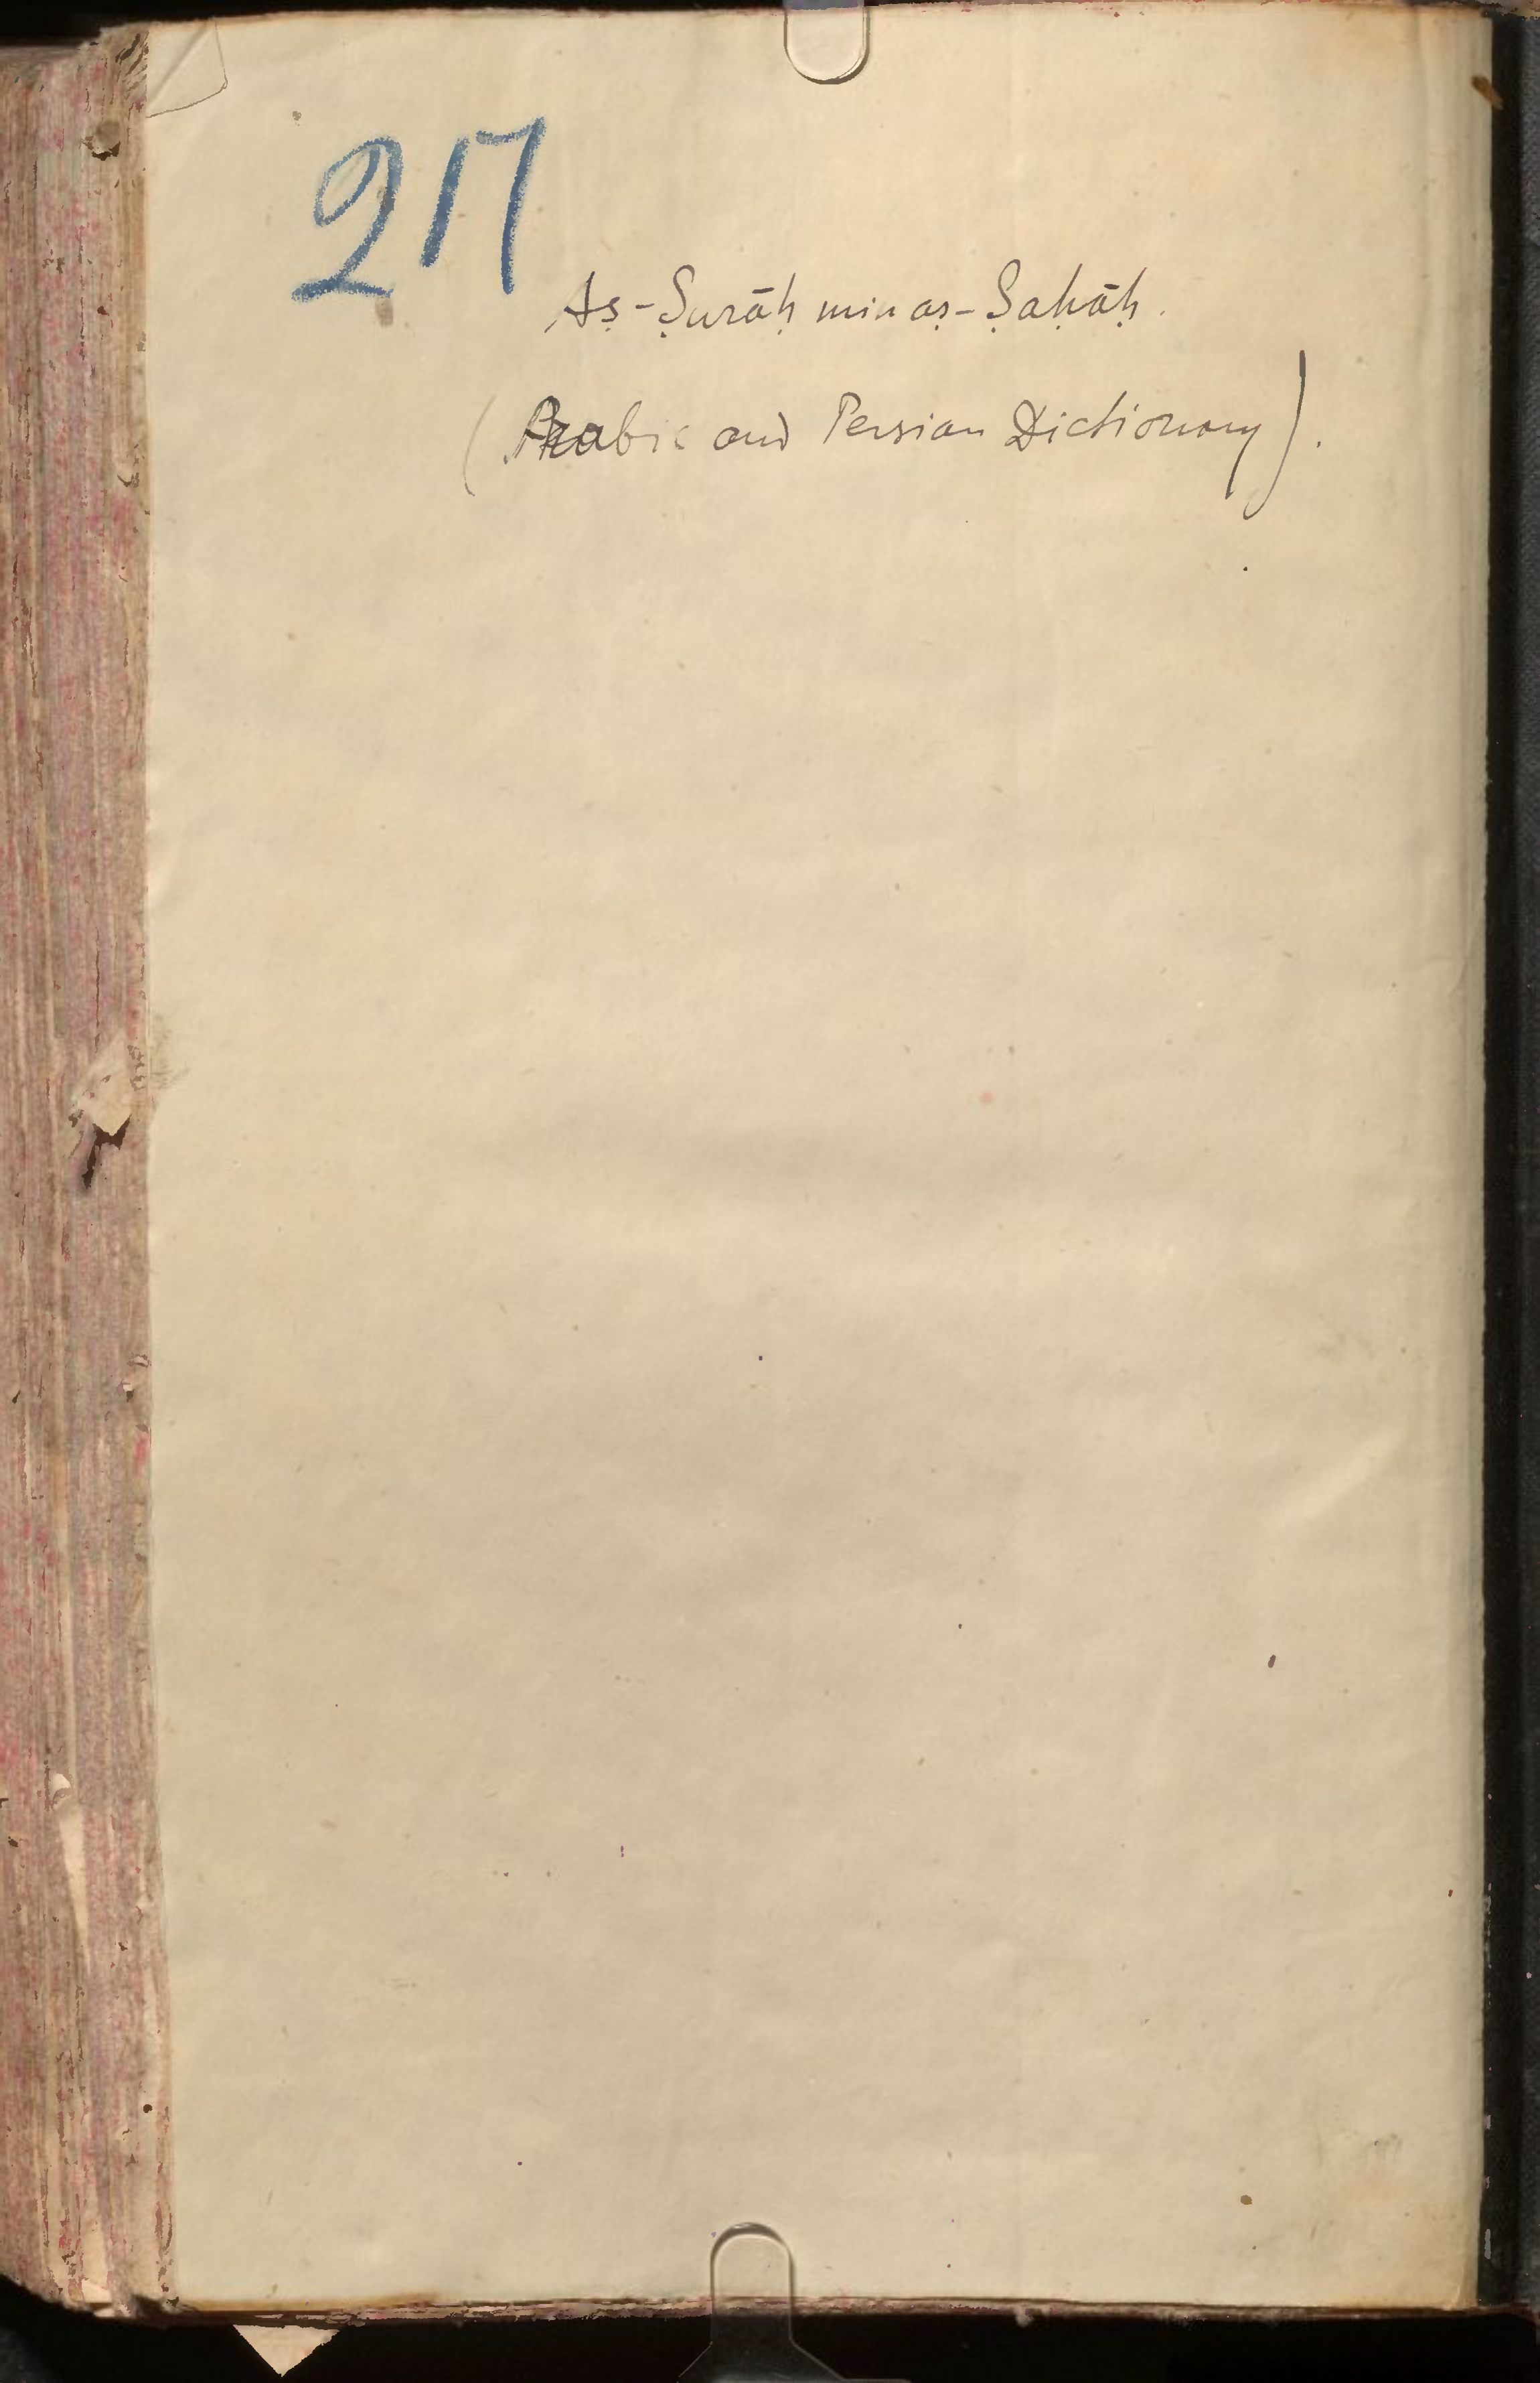 217
Aṣ-Ṣurāḥ min aṣ-Ṣaḥāḥ.
(Arabic and Persian Dictionary).